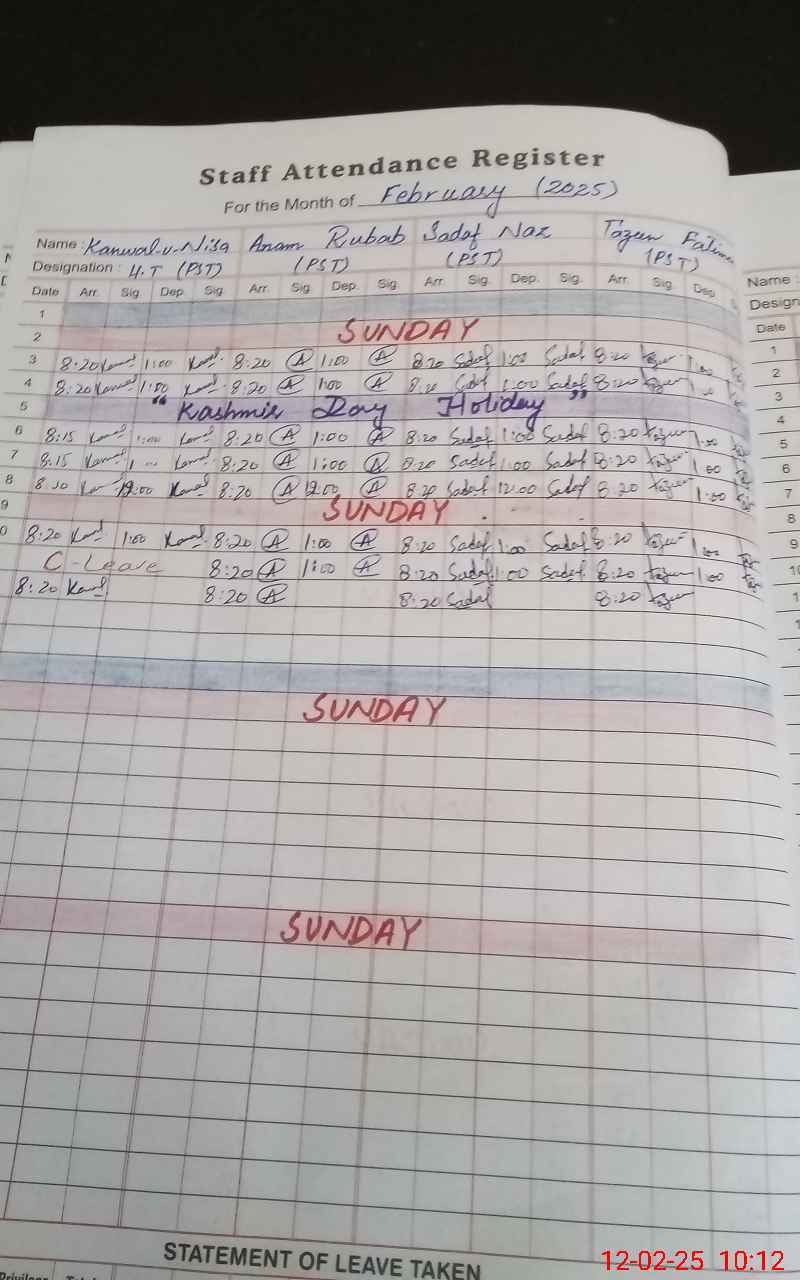 Staff Attendance Register
For the Month of February (2025)
Name : Kanwal-u-Nisa Anam Rubab Sadaf Naz Tazeen Fatima
Designation : H.T (PST) (PST) (PST) (PST)
Date Arr. Sig. Dep. Sig. Arr. Sig. Dep. Sig. Arr. Sig. Dep. Sig. Arr. Sig. Dep.
1
2 SUNDAY
3 8:20 Kanwal 1:00 Kanwal 8:20 A 1:00 A 8:20 Sadaf 1:00 Sadaf 8:20 1:00
4 8:20 Kanwal 1:00 Kanwal 8:20 A 1:00 A 8:20 Sadaf 1:00 Sadaf 8:20
5 "Kashmir Day Holiday"
6 8:15 1:00 8:20 A 1:00 A 8:20 Sadaf 1:00 Sadaf 8:20 1:00
7 8:15 8:20 A 1:00 A 8:20 Sadaf 1:00 Sadaf 8:20 1:00
8 12:00 8:20 A 12:00 A 8:20 Sadaf 12:00 Sadaf 8:20 1:00
9 SUNDAY
0 8:20 1:00 8:20 A 1:00 A 8:20 Sadaf 1:00 Sadaf 8:20 1:00
C-Leave 8:20 A 1:00 A 8:20 Sadaf 1:00 Sadaf 8:20 1:00
8:20 8:20 A 8:20 Sadaf 8:20
SUNDAY
SUNDAY
STATEMENT OF LEAVE TAKEN
Name :
Design
Date
1
2
3
4
5
6
7
8
9
10
1
12-02-25 10:12